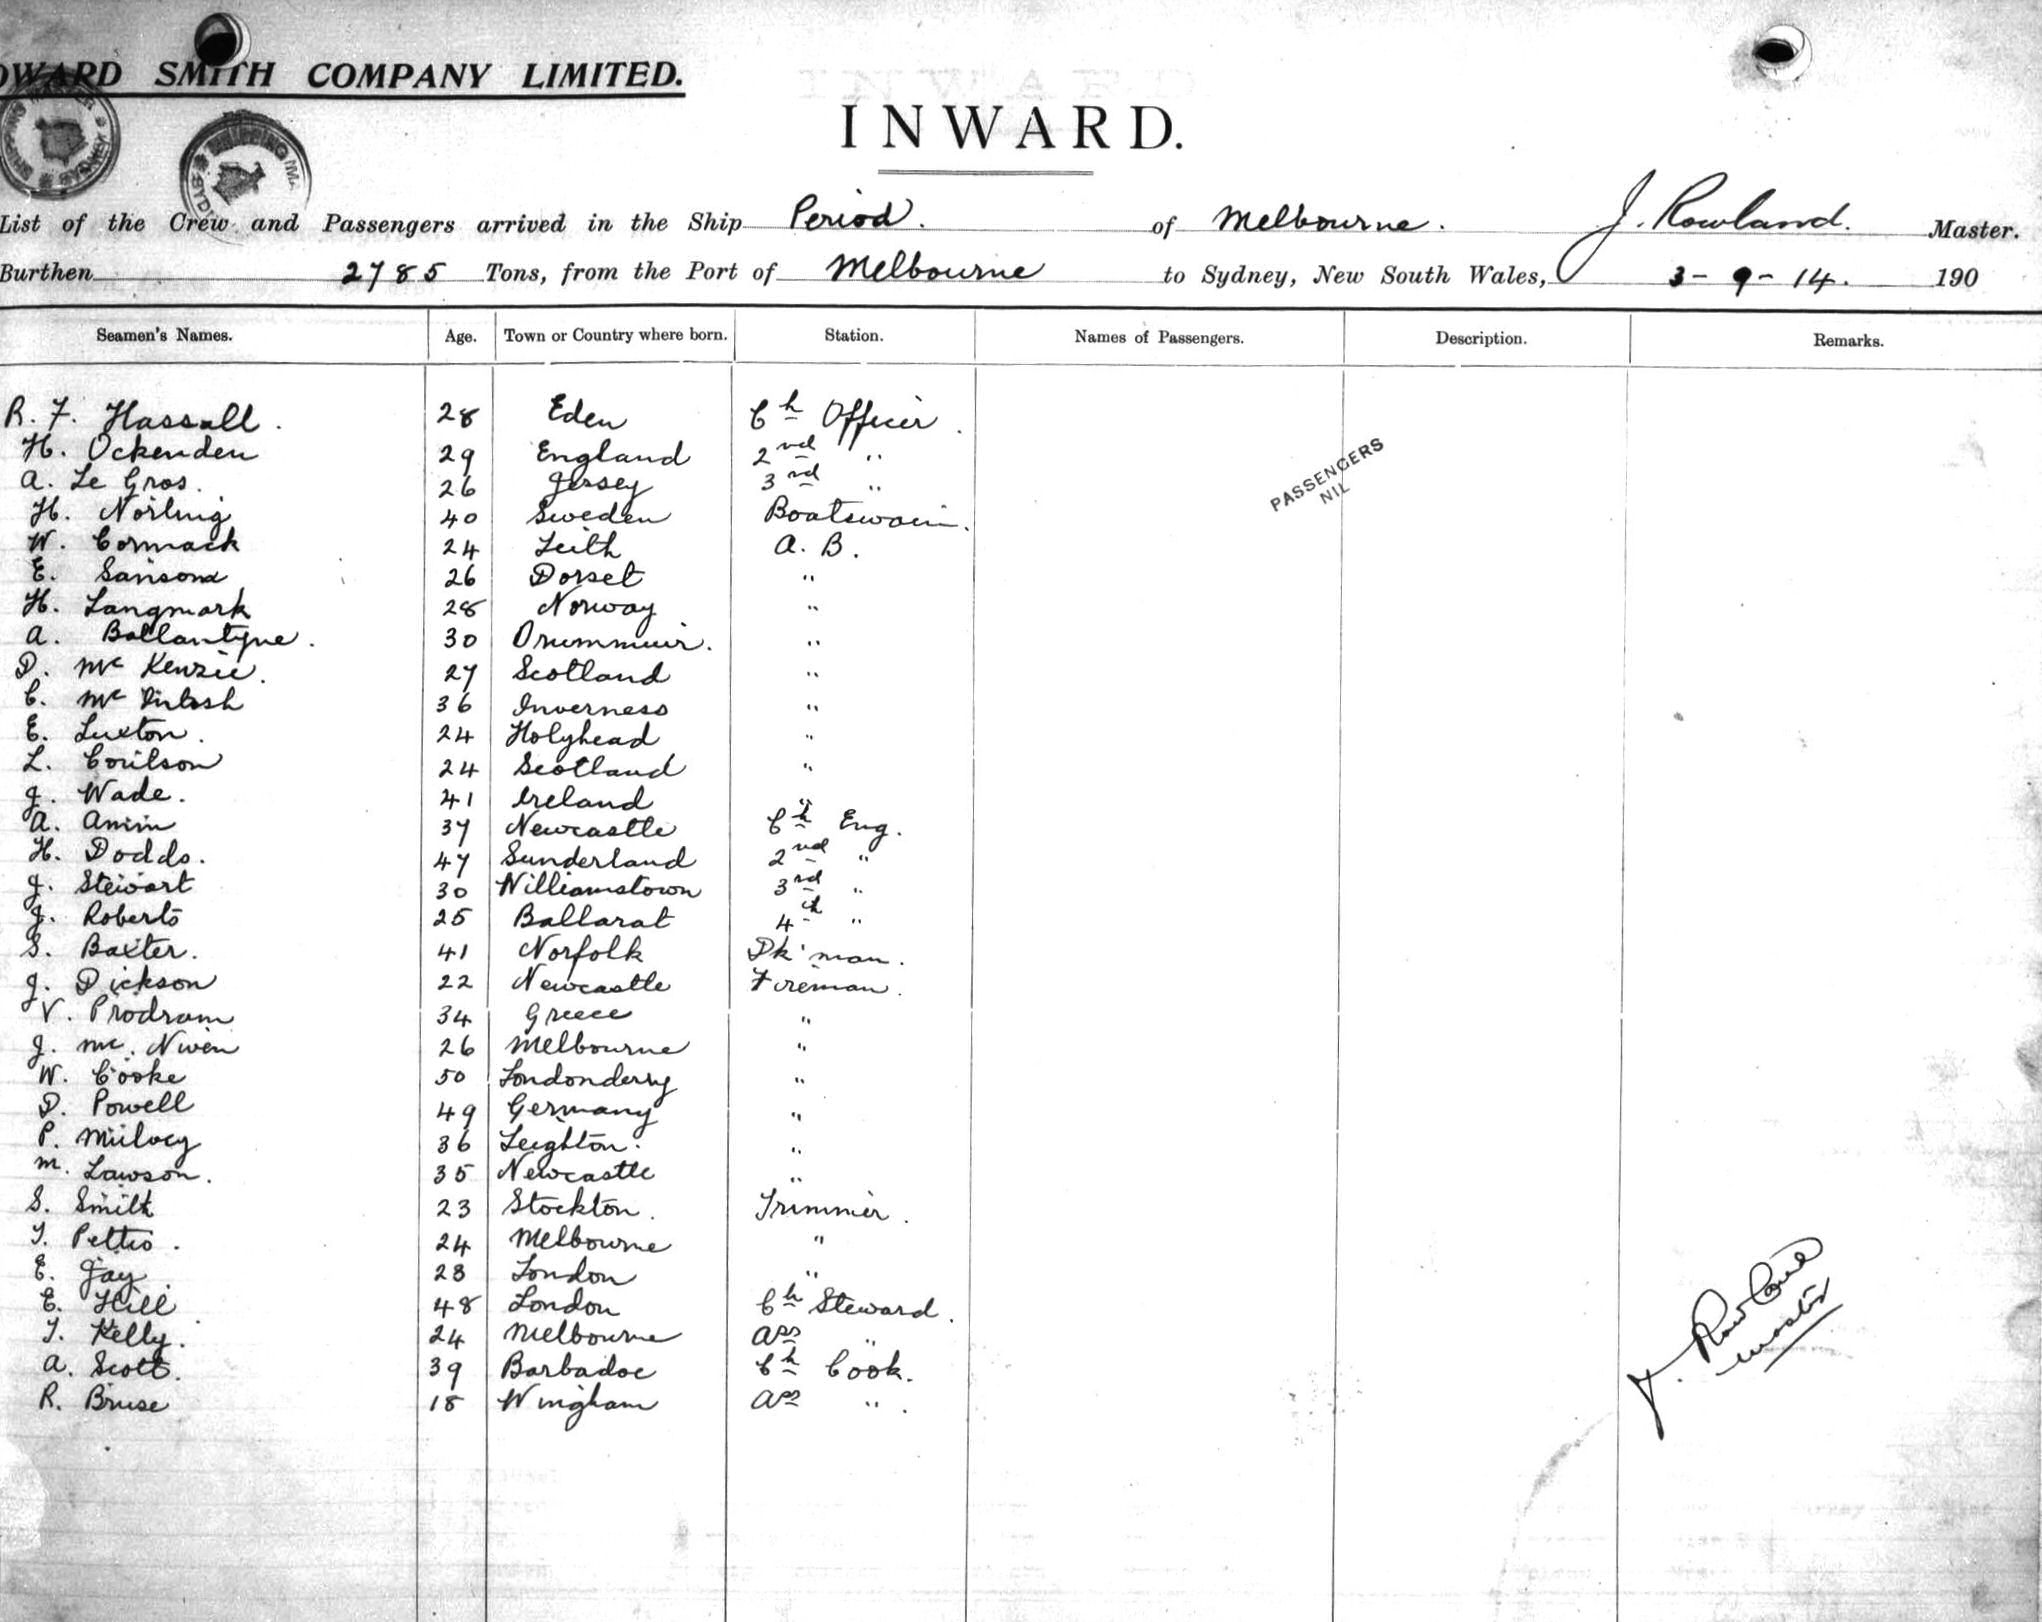 OWARD SMITH COMPANY LIMITED.
INWARD.
List of the Crew and Passengers arrived in the Ship Period. of Melbourne. J. Rowland. Master.
Burthen 2785 Tons, from the Port of Melbourne to Sydney, New South Wales, 3-9-14. 190
Seamen's Names. Age. Town or Country where born. Station. Names of Passengers. Description. Remarks.
R. F. Hassall. 28 Eden Ch Officer.
H. Ockenden 29 England 2nd "
A. Le Gros. 26 Jersey 3rd "
H. Norling 40 Sweden Boatswain.
PASSENGERS
NIL
W. Cormack 24 Leith A. B.
E. Sansom 26 Dorset "
H. Langmark 28 Norway "
A. Ballantyne. 30 Drummuir. "
D. Mc Kenzie. 27 Scotland "
C. Mc Intosh 36 Inverness "
E. Luxton. 24 Holyhead "
L. Coulson 24 Scotland "
J. Wade. 41 Ireland "
A. 37 Newcastle Ch Eng.
H. Dodds. 47 Sunderland 2nd "
J. Stewart 30 Williamstown 3rd "
J. Roberts 25 Ballarat 4th "
S. Baxter. 41 Norfolk Dk'man.
J. Dickson 22 Newcastle Fireman.
V. Prodram 34 Greece "
J. Mc. Niven 26 Melbourne "
W. Cooke 50 Londonderry "
D. Powell 49 Germany "
P. 36 Leighton. "
M. Lawson. 35 Newcastle "
S. Smith 23 Stockton. Trimmer.
T. 24 Melbourne "
E. Jay 23 London "
E. Hill 48 London Ch Steward.
T. Kelly. 24 Melbourne Ass "
A. Scott. 39 Barbadoe Ch Cook.
R. Bruse 18 Wingham Ass ".
J. Rowland
Master